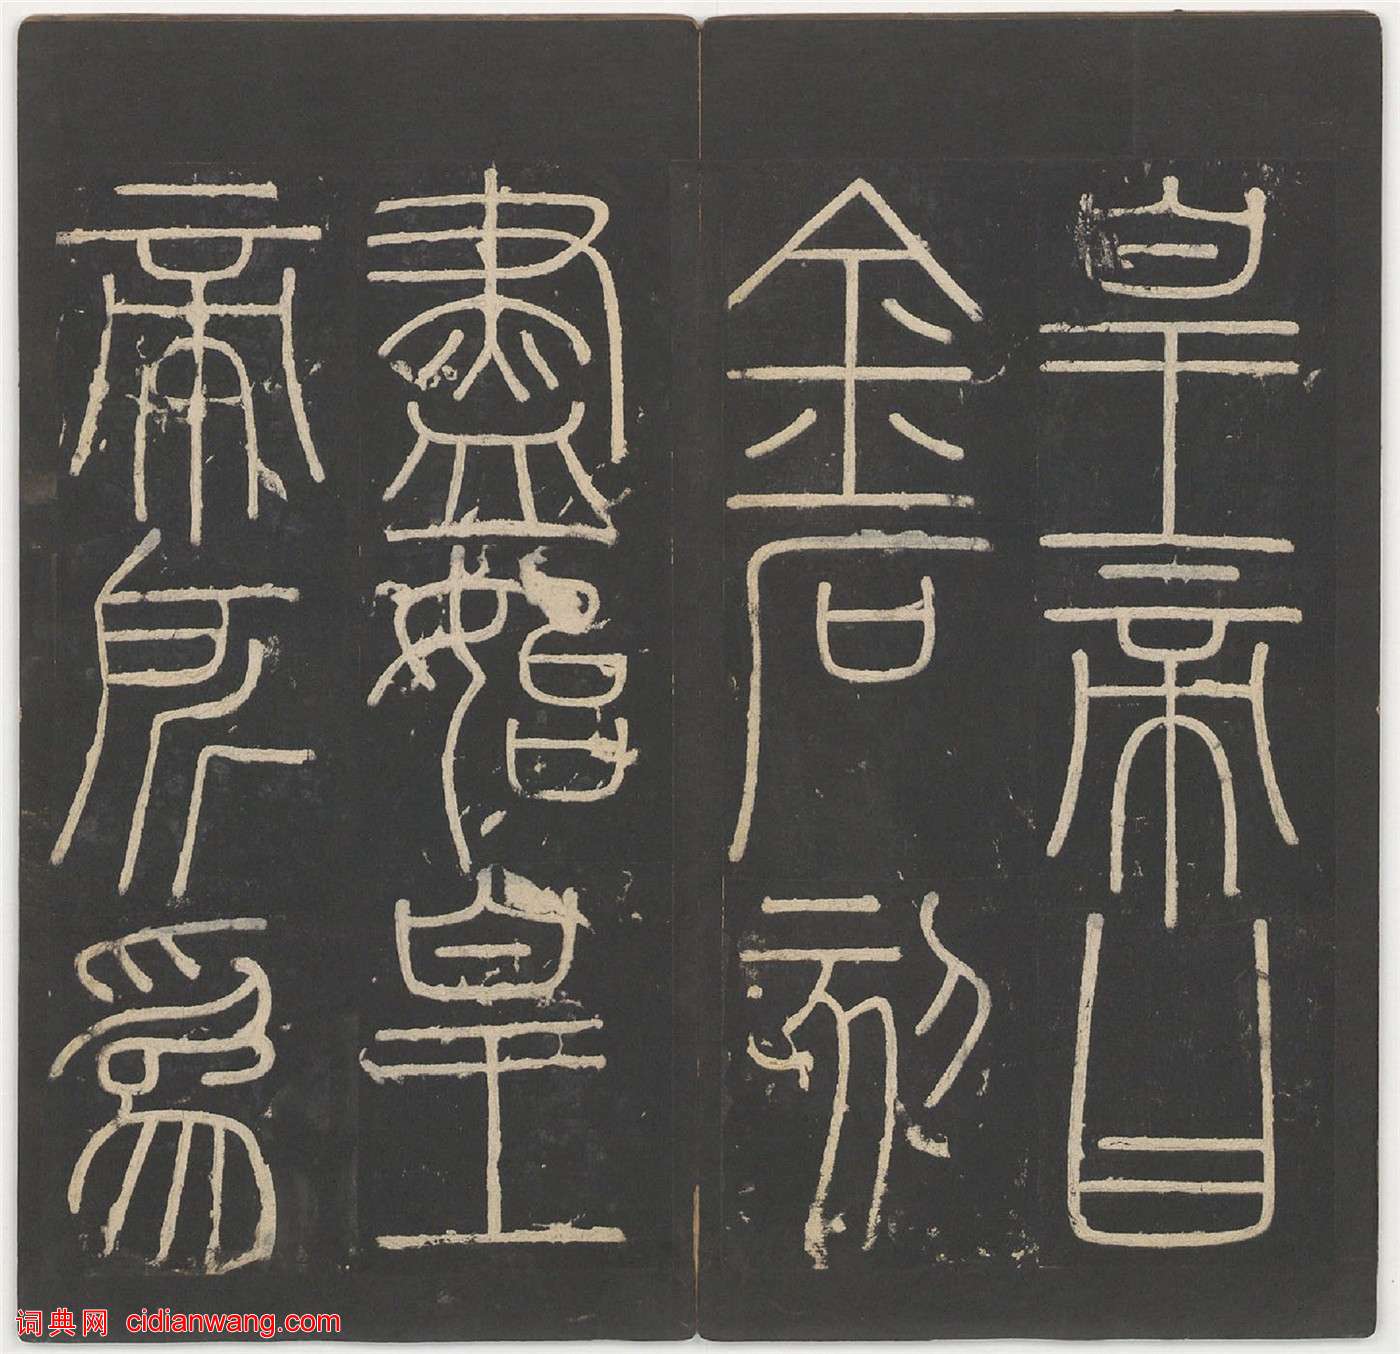 皇帝曰
金石刻
盡始皇
帝所為
词典网 cidianwang.com